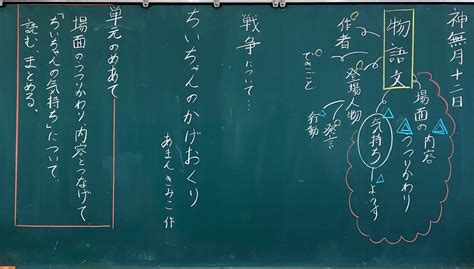 神無月十二日
物語文
場面の内容
うつりかわり
気持ち
ようす
登場人物
発言
行動
作者
できごと
戦争について…
ちいちゃんのかげおくり
あまんきみこ 作
単元のめあて
場面のうつりかわり 内容とつなげて
「ちいちゃんの気持ち」について、
読む、まとめる。